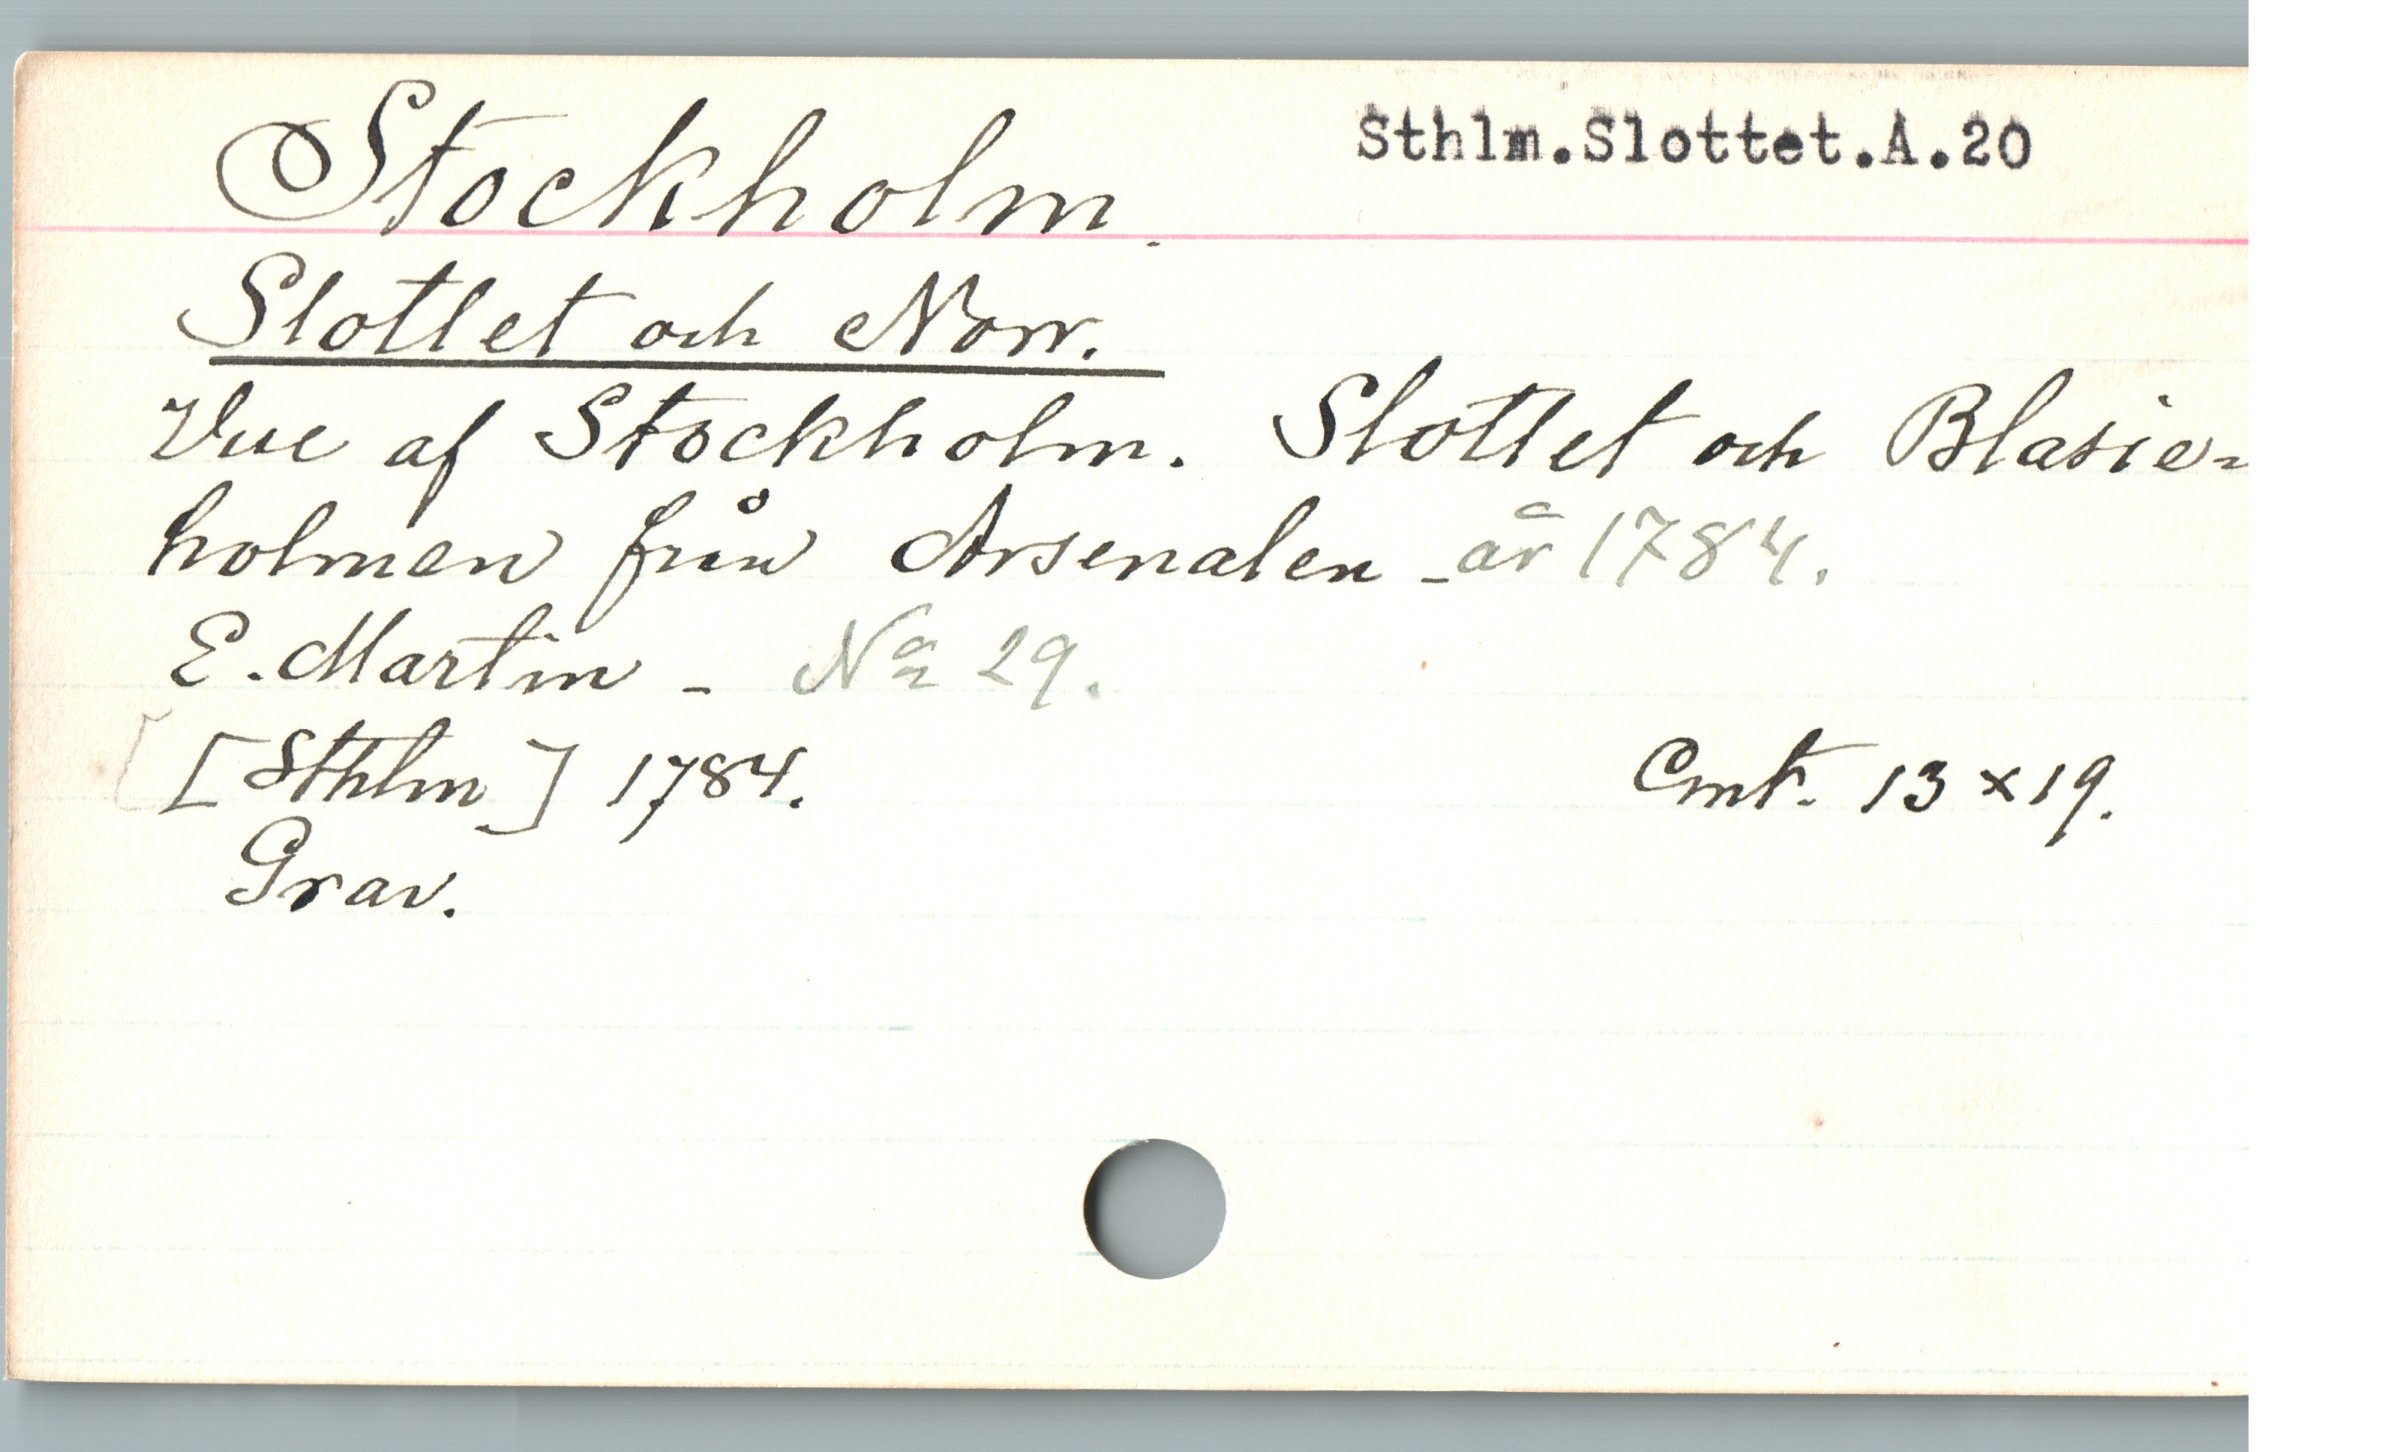 Stockholm. Sthlm.Slottet.A.20
Slottet och Norr.
Vue af Stockholm. Slottet och Blasie=
holmen från Arsenalen - år 1784.
E. Martin - No 29.
[Sthlm] 1784. Cmt. 13 x 19.
Grav.